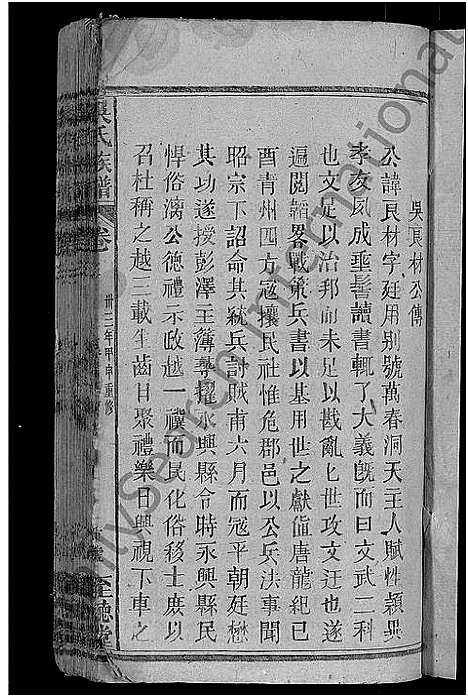 吳良材公傳
公諱良材字廷用別號萬春洞天主人賦性穎異
孝友夙成垂髫讀書輒了大義旣而曰文武二科
也文足以治邦而未足以戡亂匕世攻文迂也遂
遍閲韜畧戰策兵書以基用世之猷値唐龍紀已
酉青州四方寇攘民社惟危郡邑以公兵法事聞
昭宗下詔命其統兵討賊甫六月而寇平朝廷懋
其功遂授彭澤主簿尋擢永興縣令時永興縣民
悍俗漓公德禮示政越一禩而民化俗移士庶以
召杜稱之越三載生齒日聚禮樂日興視下車之
吳氏族譜 卷
卅三年甲申重修
至德堂
MytySearch International